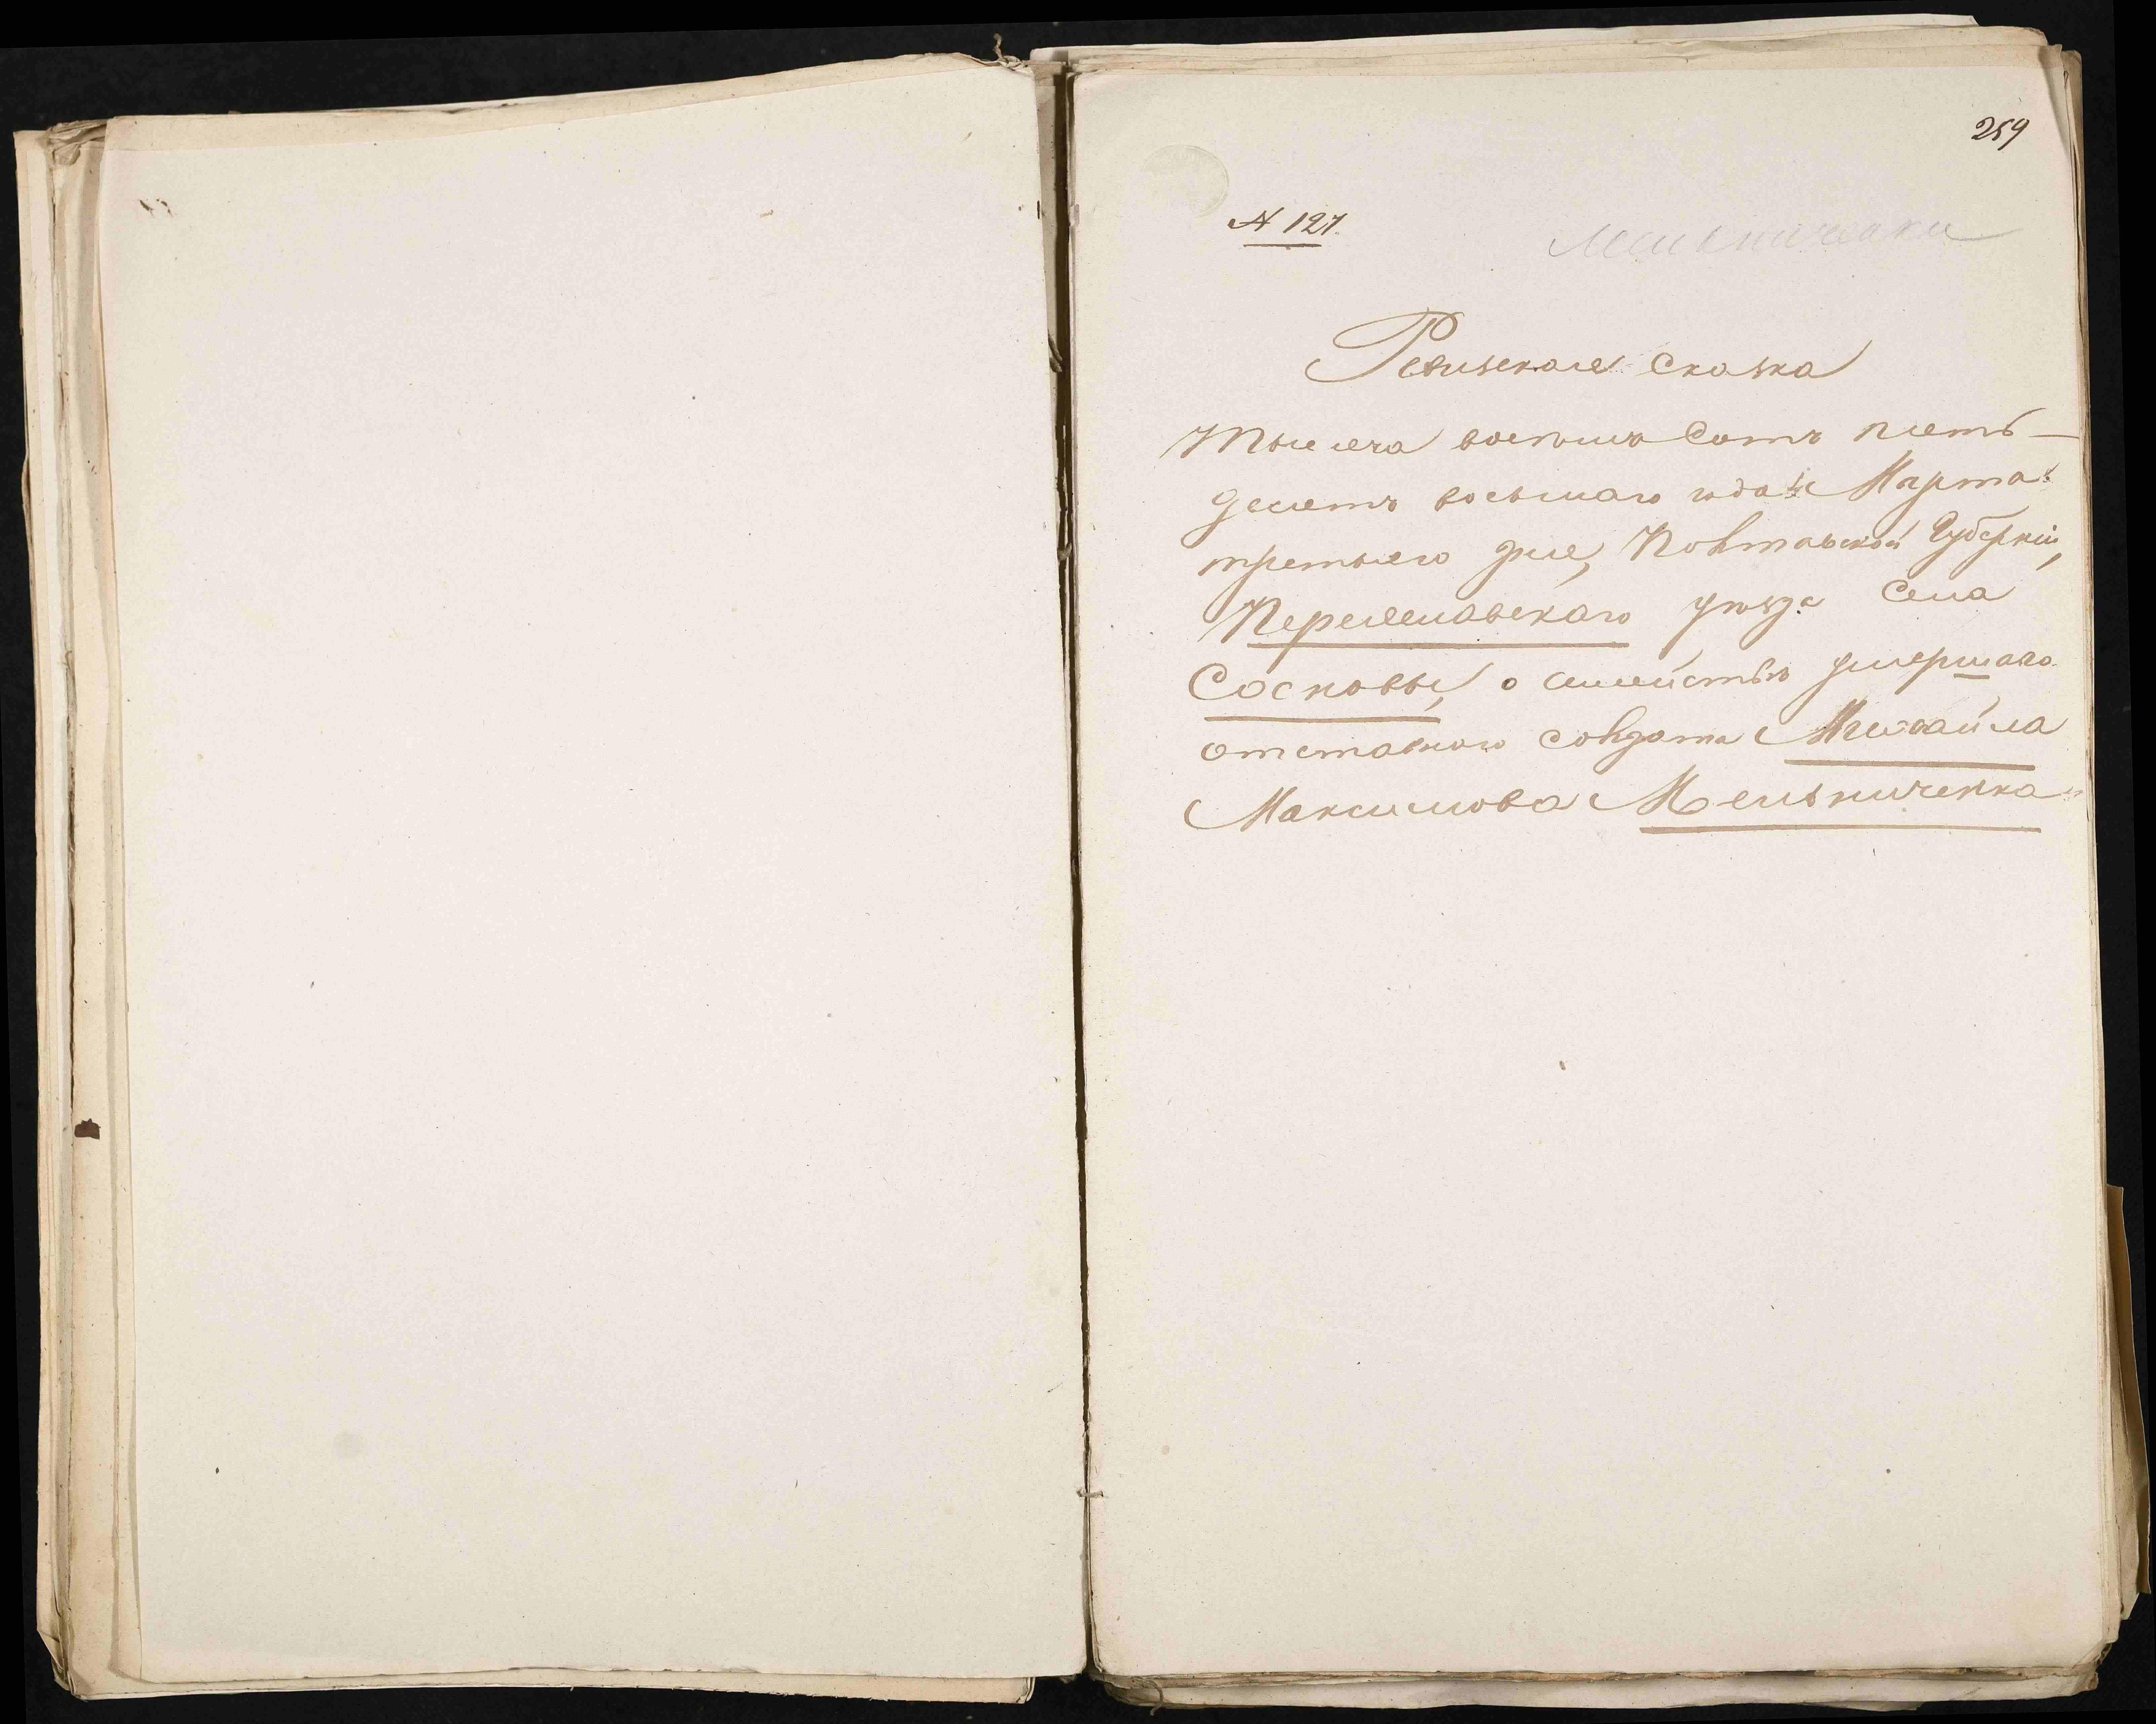 259
№ 127.
Мельниченки
Ревизская Сказка
Тысяча восемь Сотъ пять-
десятъ восьмаго года Марта
третьяго дня, Полтавской Губерніи,
Переяславскаго уезда Села
Сосновы, о семействѣ умершаго
отставного Солдата Михайла
Максимова Мельниченка